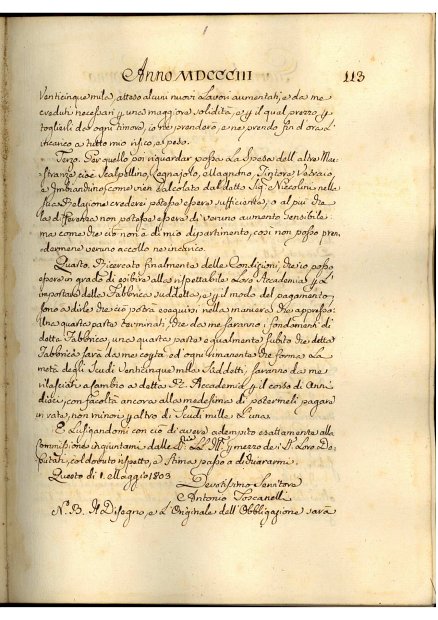 Anno MDCCCIII 113
Venticinque mila, atteso alcuni nuovi Lavori aumentati, e da me
creduti necessari p una maggiore solidità, e p il qual prezzo, p
toglierli da ogni timore, io ne prenderò, e ne prendo fin d'ora l'i
ncarico a tutto mio risico, e peso.
Terzo. Per quello poi riguardar possa La Spesa dell'altre Mae
stranze cioè Scalpellino, Legnajolo, Magnano, Tintore, Vetraio,
e Imbianchino come vien calcolato dal detto Sig. Niccolini nella
sua Relazione crederei potesse essere sufficiente, o al più che
la differenza non potesse essere di veruno aumento sensibile:
ma come che ciò non è di mio dipartimento, così non posso pren
dermene veruno accollo ne incarico.
Quarto. Ricercato finalmente delle Condizioni, che io posso
essere in grado di esibire alla rispettabile Loro Accademia p L'
importare della Fabbrica suddetta, e p il modo del pagamento,
sono a dirle che ciò potrà eseguirsi nella maniera che appresso:
Una quarta parte terminati che da me saranno i fondamenti di
detta Fabbrica, una quarta parte egualmente subito che detta
Fabbrica sarà da me coperta, ed ogni rimanente che forma La
metà degli Scudi Venticinque mila Suddetti, saranno da me
rilasciati a cambio a detta R. Accademia p il corso di Anni
dieci, con facoltà ancora alla medesima di potermeli pagare
in rate, non minori p altro di Scudi mille L'una.
E Lusingandomi con ciò di avere adempito esattamente alla
Commissione ingiuntami dalle p mezzo dei Loro De
putati, col dovuto rispetto, e stima passo a dichiararmi.
Questo dì 1. Maggio 1803
Devotissimo Servitore
Antonio Toscanelli
N. B. Il Disegno, e l'Originale dell'Obbligazione sarà